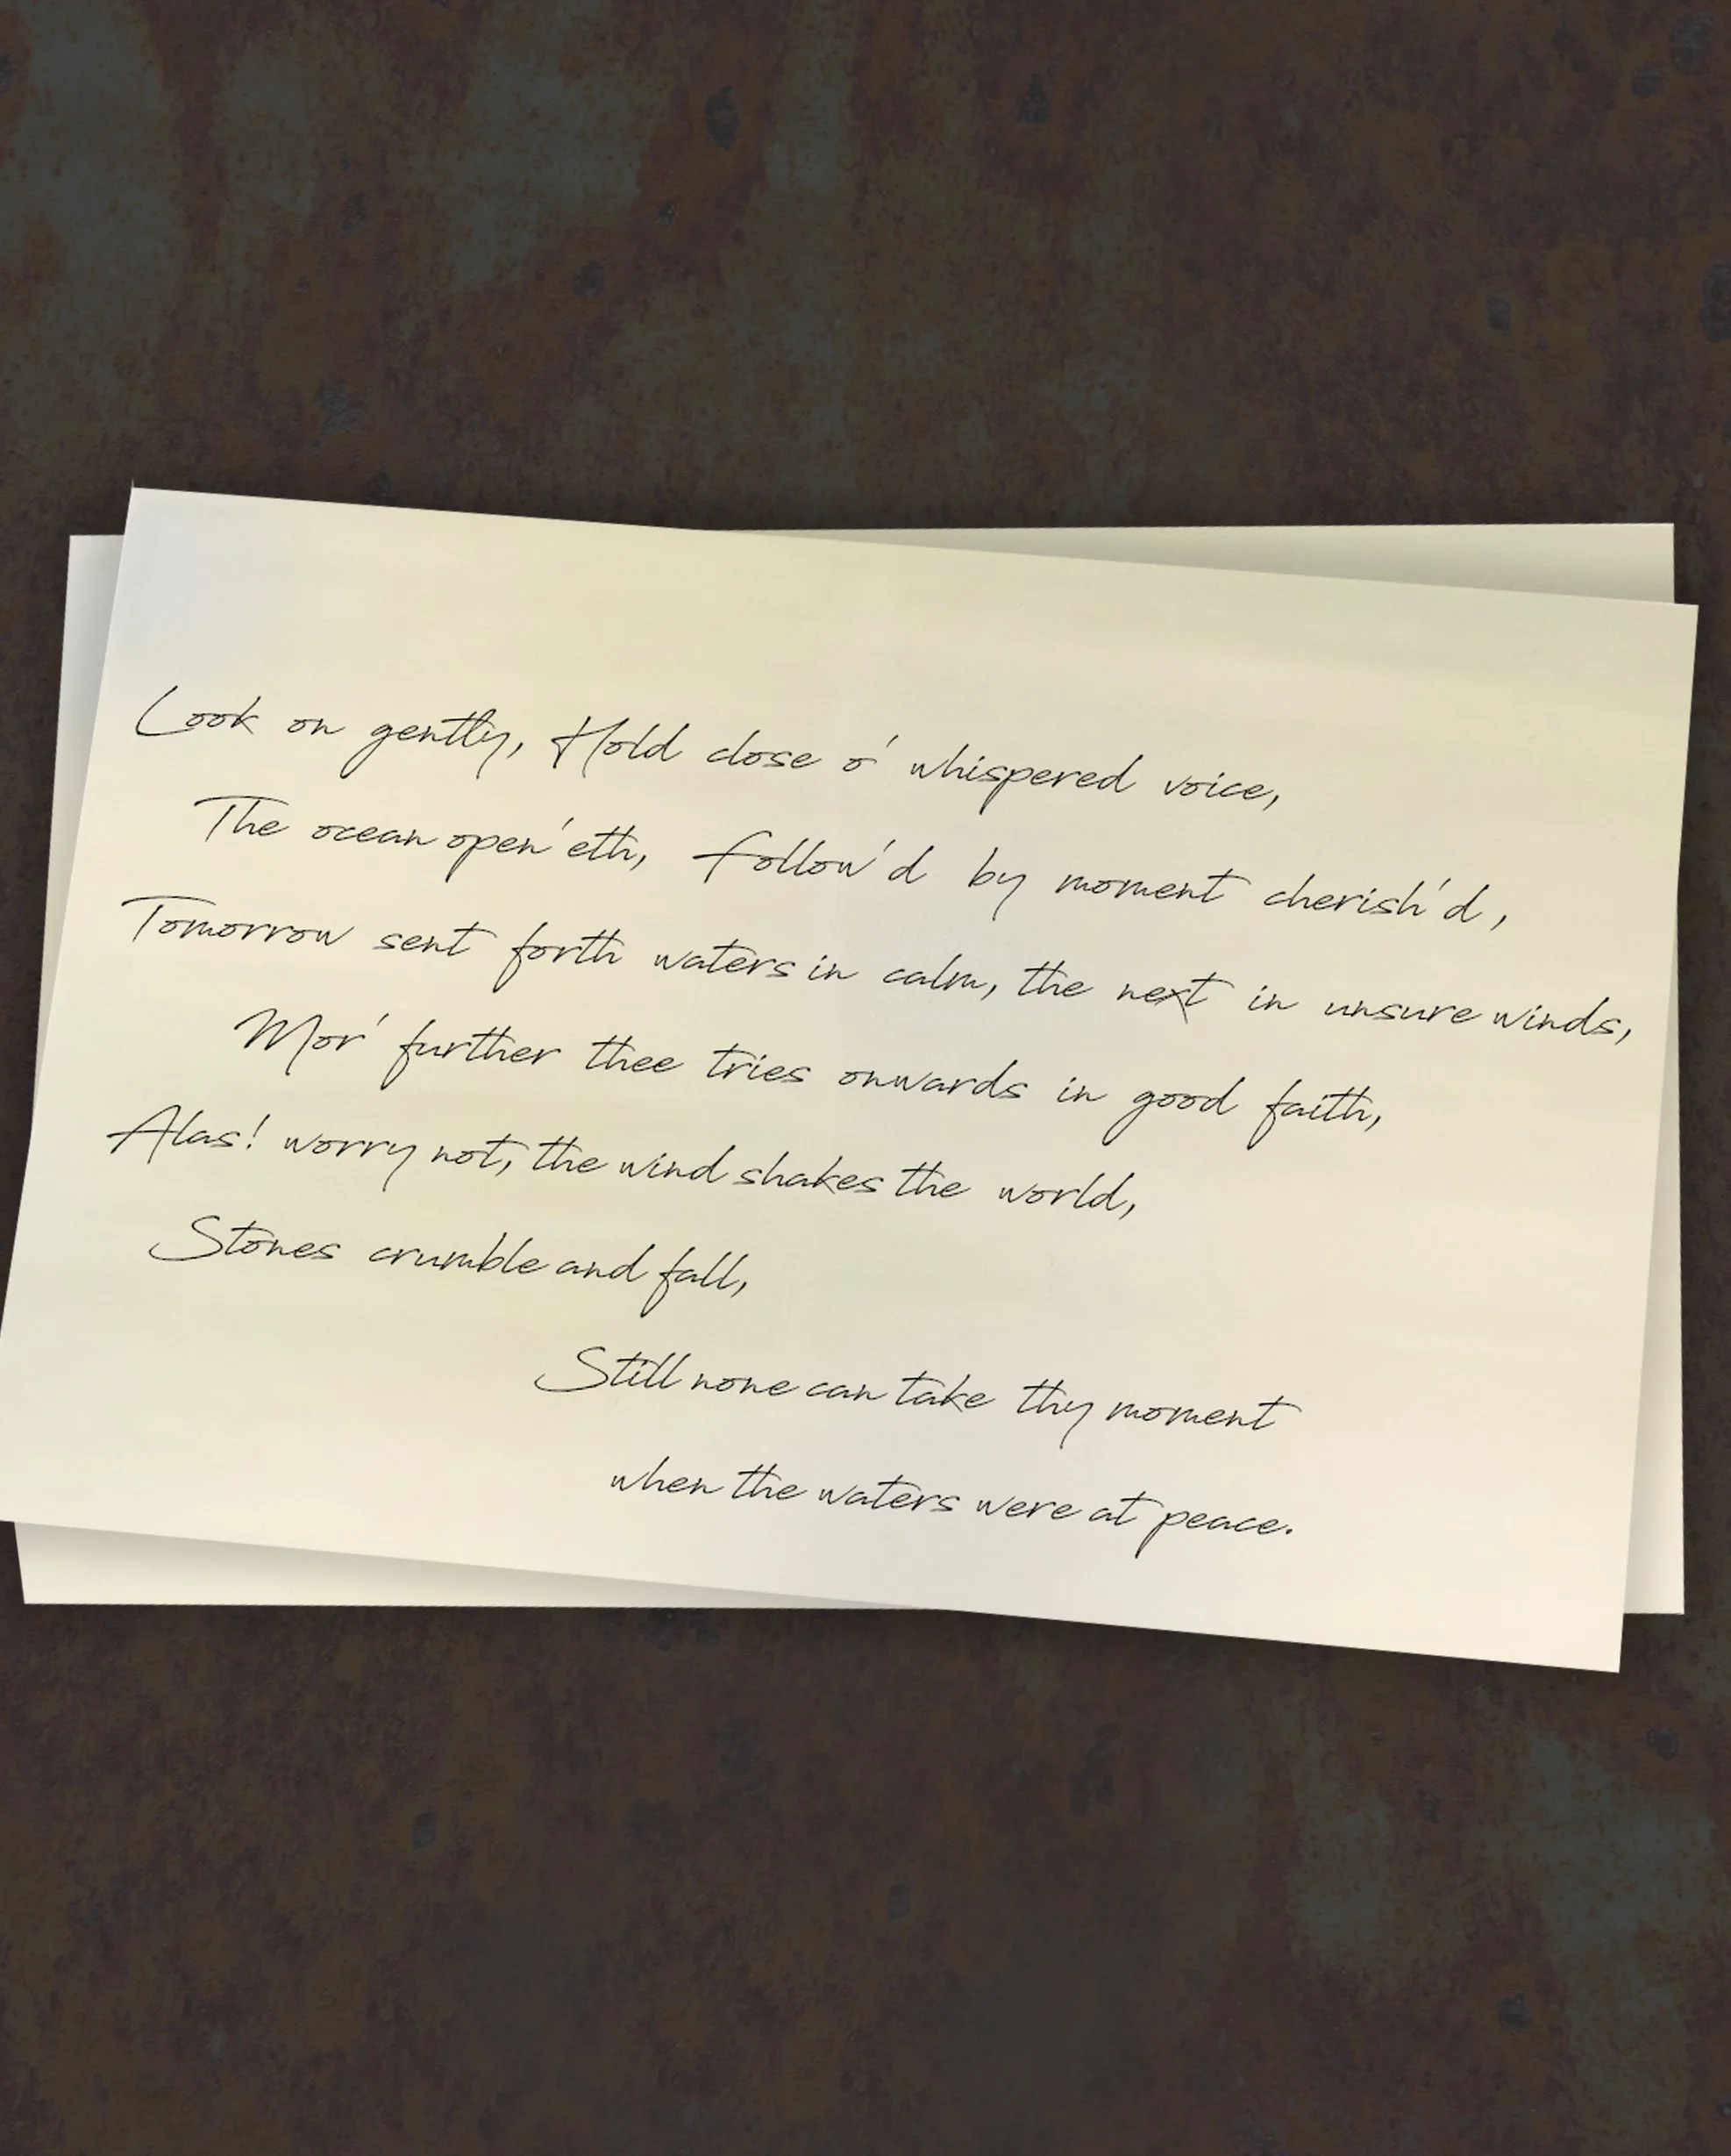 Look on gently, Hold close o' whispered voice,
The ocean open'eth, follow'd by moment cherish'd,
Tomorrow sent forth waters in calm, the next in unsure winds,
Mor' further thee tries onwards in good faith,
Alas! worry not, the wind shakes the world,
Stones crumble and fall,
Still none can take thy moment
when the waters were at peace.